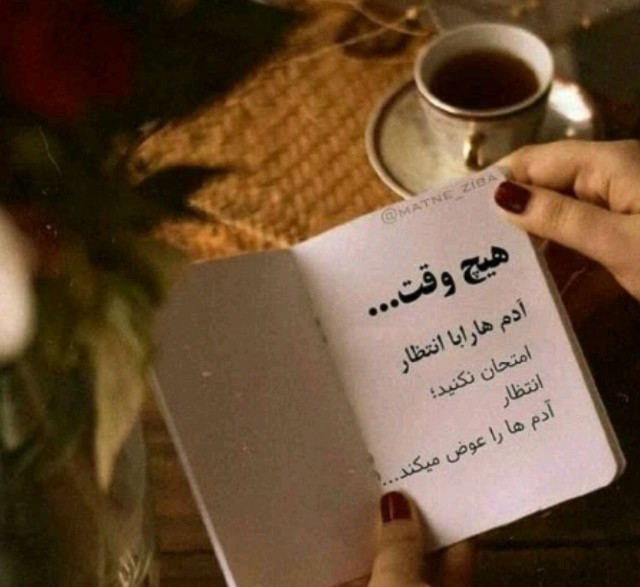 @MATNE_ZIBA
هیچ وقت...
آدم هارابا انتظار
امتحان نکنید؛
انتظار
آدم ها را عوض میکند...